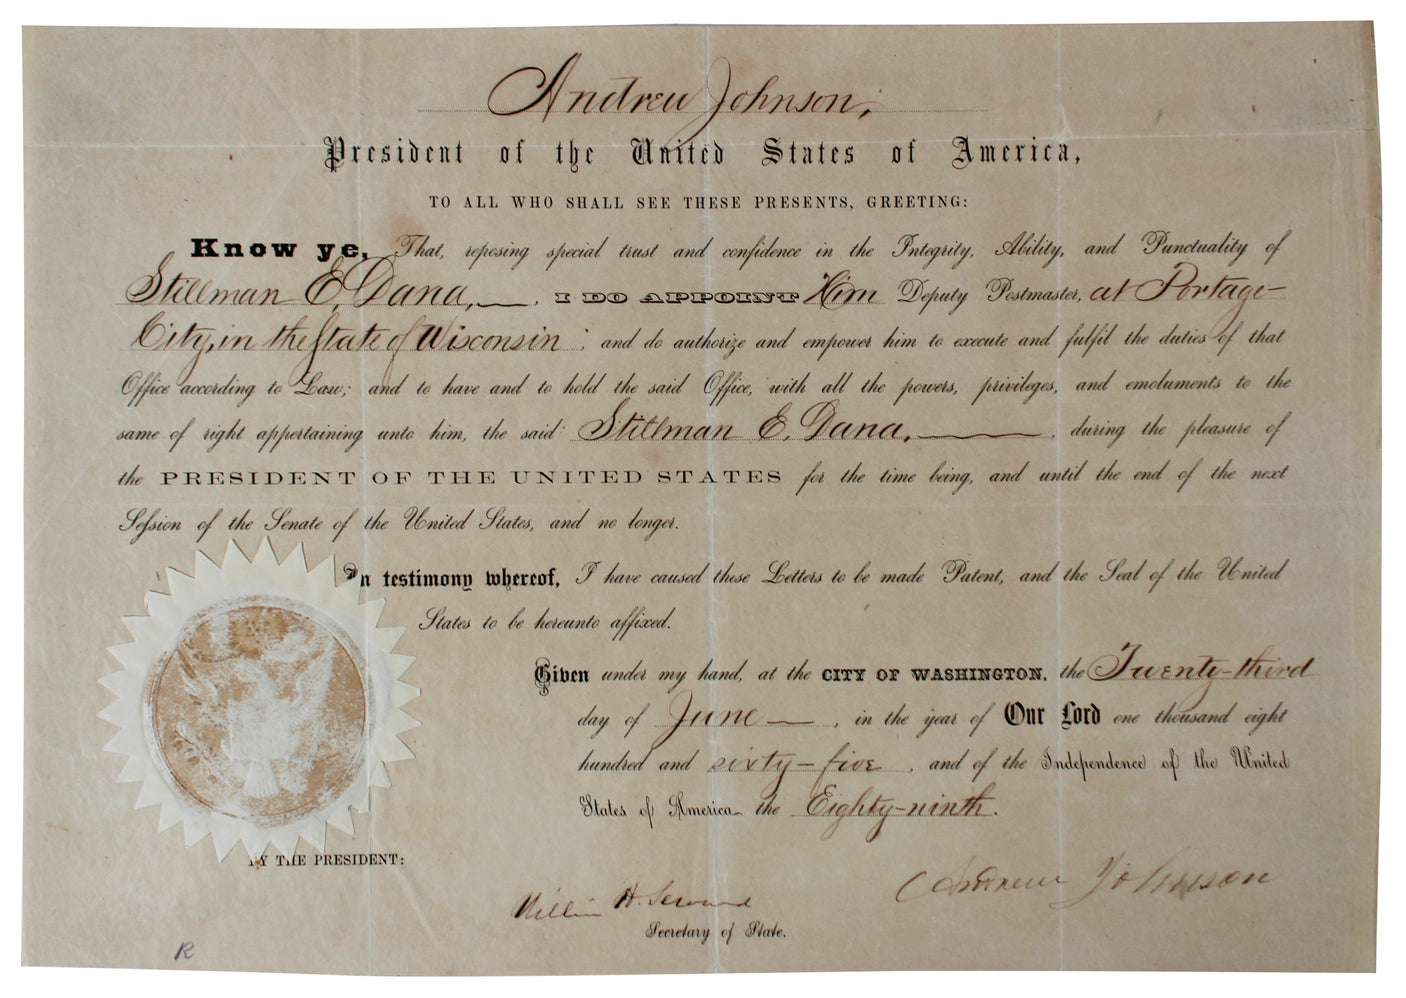 Andrew Johnson,
President of the United States of America,
TO ALL WHO SHALL SEE THESE PRESENTS, GREETING:
Know ye, That, reposing special trust and confidence in the Integrity, Ability, and Punctuality of
Stillman E. Dana, , I DO APPOINT Him Deputy Postmaster, at Portage
City, in the State of Wisconsin ; and do authorize and empower him to execute and fulfil the duties of that
Office according to Law; and to have and to hold the said Office, with all the powers, privileges, and emoluments to the
same of right appertaining unto him, the said Stillman E. Dana, , during the pleasure of
the PRESIDENT OF THE UNITED STATES for the time being, and until the end of the next
Session of the Senate of the United States, and no longer.
In testimony whereof, I have caused these Letters to be made Patent, and the Seal of the United
States to be hereunto affixed.
Given under my hand, at the CITY OF WASHINGTON, the Twenty-third
day of June , in the year of Our Lord one thousand eight
hundred and sixty-five , and of the Independence of the United
States of America the Eighty-ninth.
BY THE PRESIDENT:
Andrew Johnson
William H. Seward
Secretary of State.
R